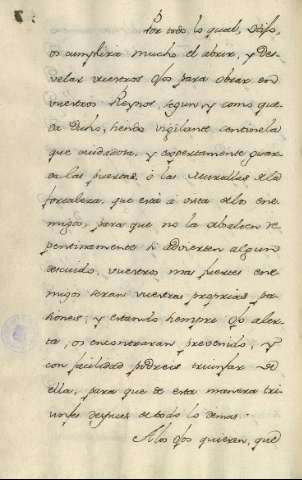 Por todo lo qual, Ososo,
os cumplirá mucho el abrir, y des-
velar vuestros ojos para obrar en
vuestros Reynos, segun, y como que-
da dicho, siendo vigilante centinela
que cuidadosa, y expertamente guar-
da las puertas, ó las Murallas de la
fortaleza, que está à vista de los ene-
migos, para que no la asalten re-
pentinamente si advierten algun
descuido, vuestros mas fuertes ene-
migos seran vuestras proprias pa-
siones, y estando siempre ojo aler-
ta, os encontraran prevenido, y
con facilidad podreis triunfar de
ella, para que de esta manera tri-
unfes despues de todo lo demas.
A los ojos quieren, que